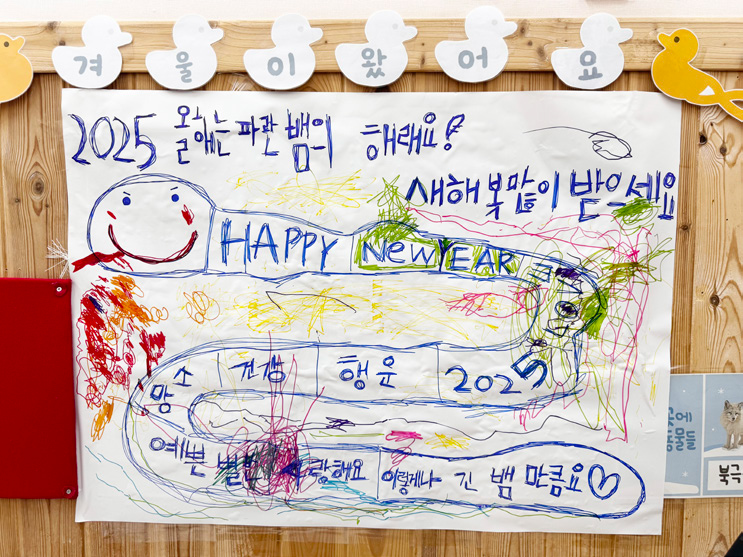 겨울이 왔어요
2025 올해는 파란 뱀의 해래요!
새해 복 많이 받으세요
HAPPY NEW YEAR
2025
행운
건강
소망
예쁜 별반 사랑해요 이렇게나 긴 뱀 만큼요♡
북극